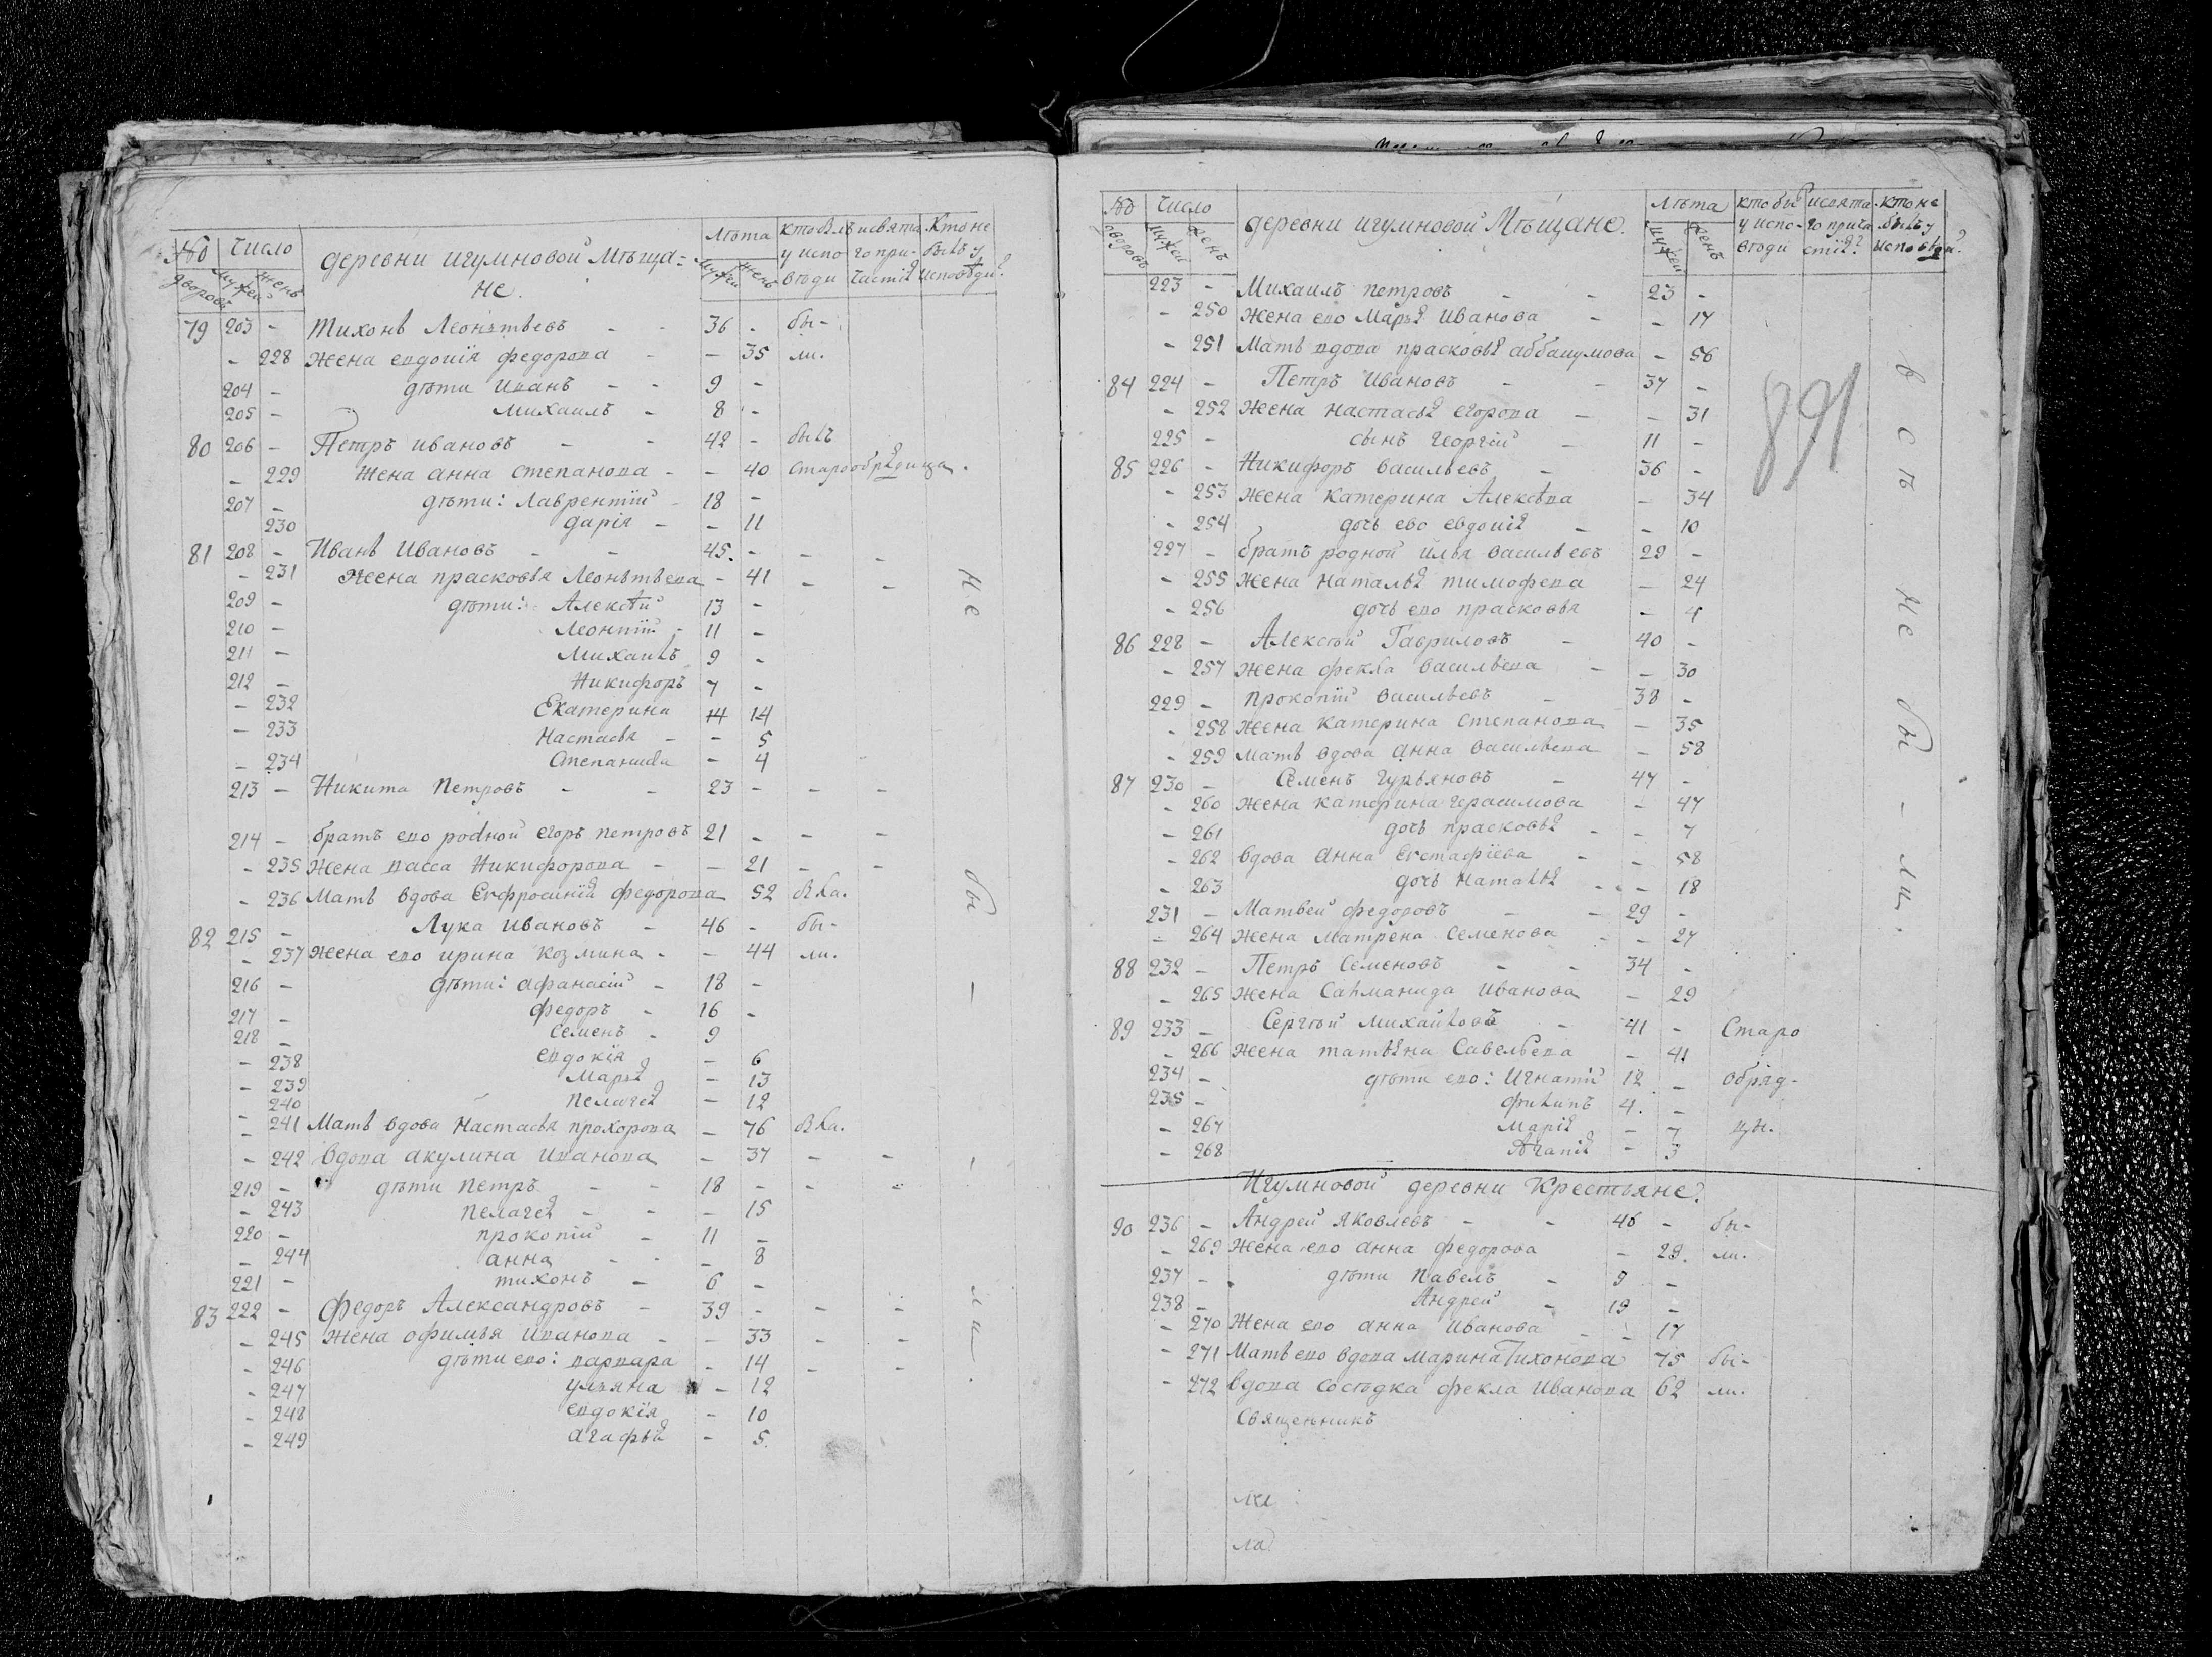 № Число деревни игумновой Мѣща- Лѣта кто былъ и свята Кто не
дворовъ мужей женъ не. мужей женъ у испо го при- былъ у
вѣди частія исповѣди?
79 203 - Тихонъ Леонтьевъ - - 36 - бы-
- 228 жена евдокія федорова - - 35 ли.
204 - дѣти иванъ - - 9 -
205 - михаилъ - 8 -
80 206 - Петръ ивановъ - - 42 - былъ
- 229 жена анна степанова - - 40 старообрядица.
207 - дѣти: Лаврентій - 18 -
230 дарія - - 11
81 208 - Иванъ Ивановъ - - 45. - - -
- 231 жена прасковья Леонтьева - 41 - -
209 - дѣти: Алексѣй 13 -
210 - Леонтій - 11 -
211 - Михаилъ 9 -
212 - Никифоръ 7 -
- 232 Екатерина 14 14
- 233 Настасья - - 5
- 234 Степанида - 4
213 - Никита Петровъ - - 23 - - -
214 - братъ ево родной егоръ петровъ 21 - - -
- 235 жена васса Никифорова - - 21 - -
- 236 Мать вдова Евфросинія федорова 52 была.
82 215 - Лука ивановъ - 46 - бы-
- 237 жена ево ирина козмина - - 44 ли.
216 - дѣти: афанасій - 18 -
217 - федоръ - 16 -
218 - семенъ - 9
- 238 евдокія - 6
- 239 Марья - 13
- 240 пелагея - 12
- 241 Мать вдова Настасья прохорова - 76 была.
- 242 вдова акулина иванова - 37 - -
219 - дѣти петръ - - 18 - - -
- 243 пелагея - - - 15
220 - прокопій - 11 -
- 244 анна - - - 8
221 - тихонъ - 6 -
83 222 - федоръ Александровъ - 39 - - -
- 245 жена офимья иванова - - 33 - -
- 246 дѣти ево: варвара - 14 - -
- 247 ульяна - 12
- 248 евдокія - 10
- 249 агафья - 5.
не бы - ли.
№ Число деревни игумновой Мѣщане. Лѣта кто был и свята кто не
дворовъ мужей женъ мужей женъ у испо- го прича былъ у
вѣди стія? исповѣди?
223 - Михаилъ петровъ - - 23 -
- 250 жена ево Марья Иванова - - 17
- 251 Мать вдова прасковья аббакумова - 56
84 224 - Петръ Ивановъ - - 37 -
- 252 жена настасья егорова - - 31
225 - сынъ георгій - 11 -
85 226 - Никифоръ васильевъ - 36 -
- 253 жена катерина Алексѣева - 34
- 254 дочь ево евдокия - - 10
227 - братъ родной илья васильевъ 29 -
- 255 жена наталья тимофеева - 24
- 256 дочь ево прасковья - 4
86 228 - Алексѣй Гавриловъ - 40 -
- 257 жена фекла васильева - - 30
229 - прокопій васильевъ - 38 -
- 258 жена катерина степанова - 35
- 259 мать вдова анна васильева - 58
87 230 - Семенъ гурьяновъ - 47 -
- 260 жена катерина герасимова - 47
- 261 дочь прасковья - - 7
- 262 вдова анна евстафіева - - 58
- 263 дочь наталья - - - 18
231 - Матвей федоровъ - - 29 -
- 264 жена матрена семенова - - 27
88 232 - Петръ семеновъ - - 34 -
- 265 жена Саломанида иванова - 29
89 233 - Сергѣй михайловъ - 41 - Старо
- 266 жена татьяна Савельева - 41
234 - дѣти ево: Игнатій 12 - обряд-
235 - филипъ 4. -
- 267 марія - 7 цы.
- 268 Агапія - 3
891
всѣ не бы - ли.
Игумновой деревни Крестьяне.
90 236 - Андрей яковлевъ - - 46 - бы-
- 269 жена ево анна федорова - 29. ли.
237 - дѣти павелъ - 9 -
238 - Андрей - 19 -
- 270 жена ево анна иванова - - 17
- 271 Мать ево вдова марина Тихонова 75 бы-
- 272 вдова сосѣдка фекла иванова 62 ли.
Священникъ